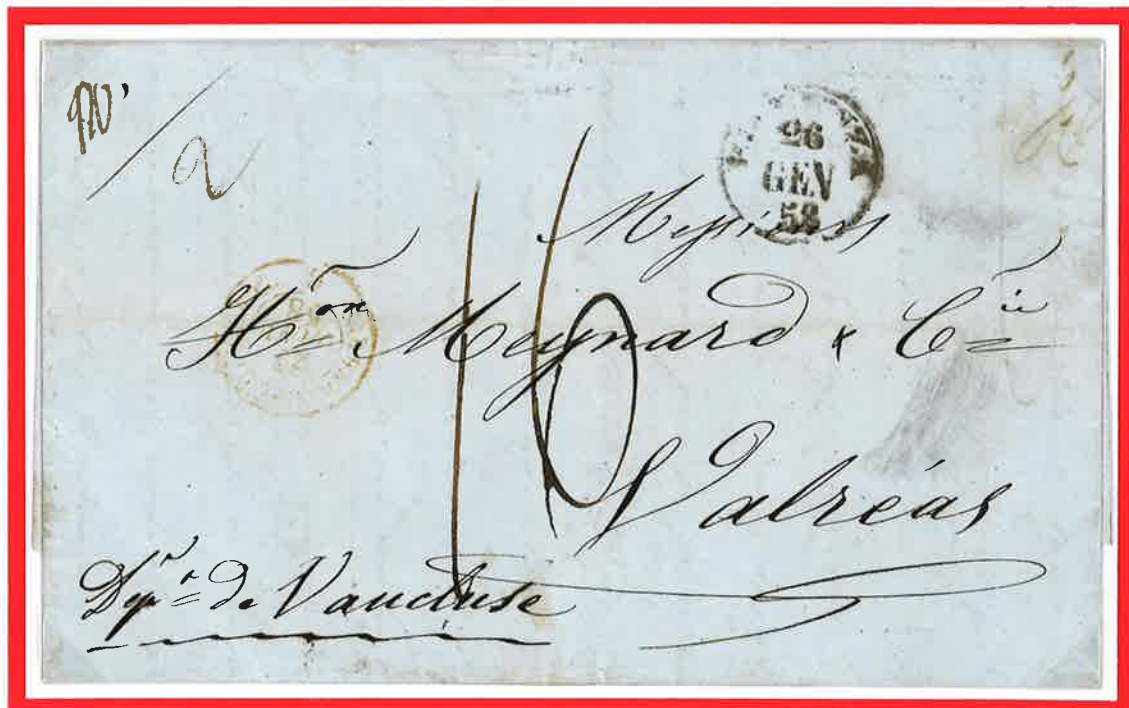 26
GEN
58
2
16
Messieurs
Hri Meynard & Cie
Valréas
Dépt de Vaucluse